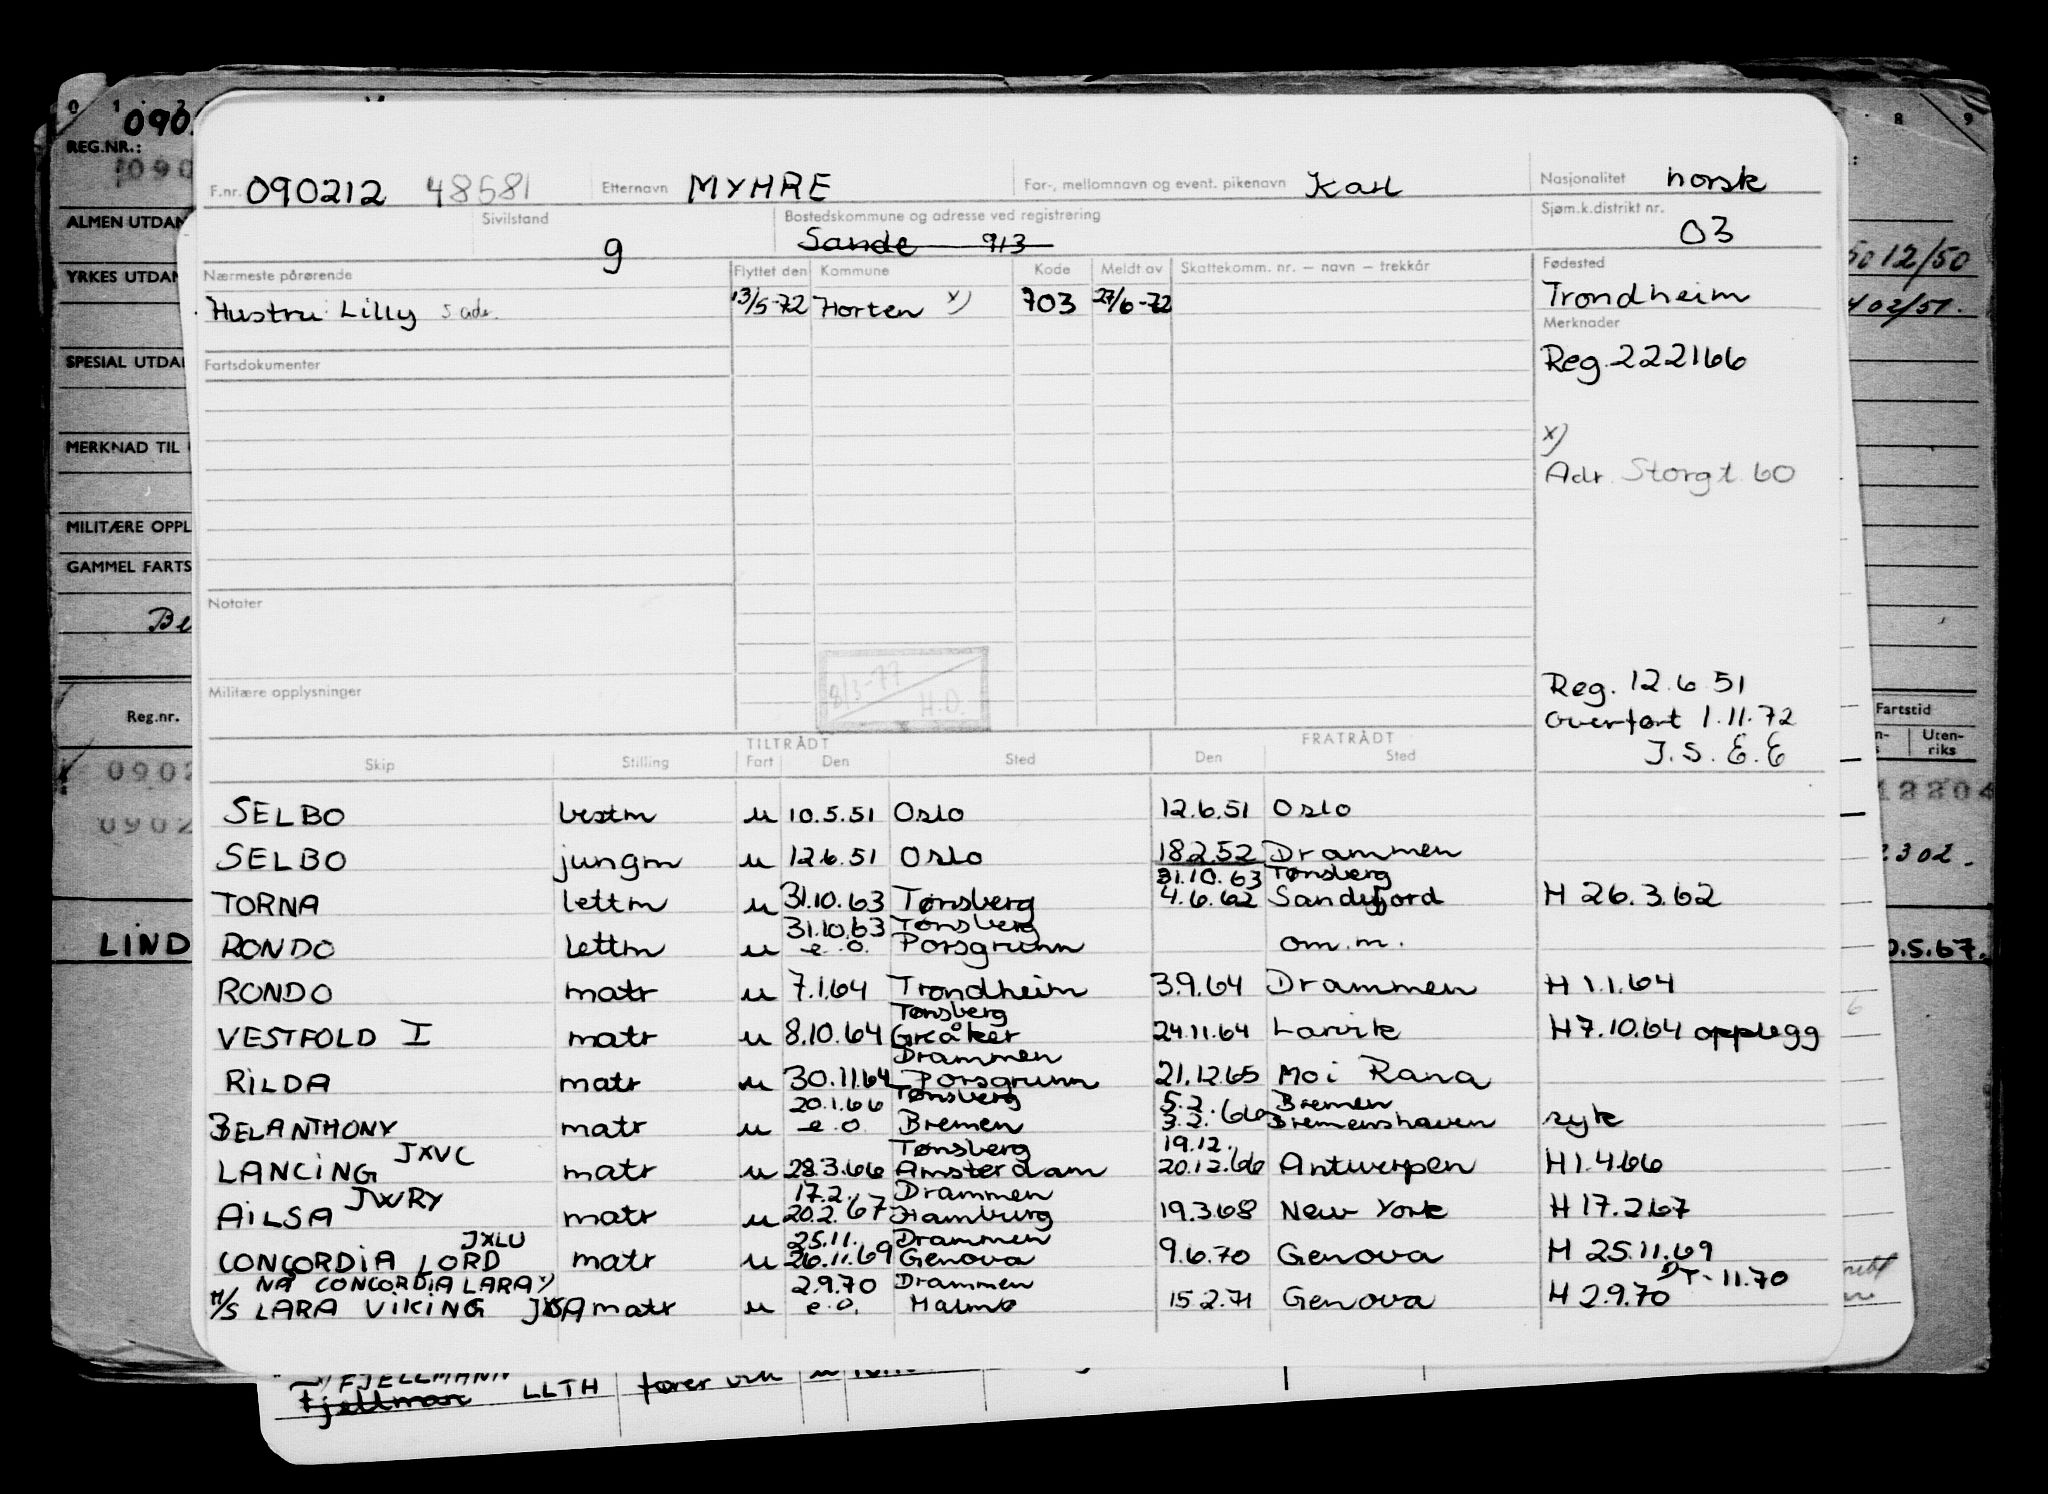 F.nr. 090212 48581 Etternavn MYHRE For-, mellomnavn og event. pikenavn Karl Nasjonalitet norsk
Sivilstand g Bostedskommune og adresse ved registrering Sande 913 Sjøm.k.distrikt nr. 03
Nærmeste pårørende Flyttet den Kommune Kode Meldt av Skattekomm. nr. – navn – trekkår Fødested
Hustru Lilly s adr. 13/5-72 Horten x) 703 27/6-72 Trondheim
Merknader
Fartsdokumenter Reg. 222166
x)
Adr. Storgt. 60
Notater
8/3-77
H.O.
Militære opplysninger Reg. 12.6.51
Overført 1.11.72
J.S. E.E
TILTRÅDT FRATRÅDT
Skip Stilling Fart Den Sted Den Sted
SELBO bestm u 10.5.51 Oslo 12.6.51 Oslo
SELBO jungm u 12.6.51 Oslo 18.2.52 Drammen
31.10.63 Tønsberg
TORNA lettm u 31.10.63 Tønsberg 4.6.62 Sandefjord H 26.3.62
31.10.63 Tønsberg
RONDO lettm u e.o. Porsgrunn om.m.
RONDO matr u 7.1.64 Trondheim 3.9.64 Drammen H 1.1.64
Tønsberg
VESTFOLD I matr u 8.10.64 Greåker 24.11.64 Larvik H 7.10.64 opplegg
Drammen
RILDA matr u 30.11.64 Porsgrunn 21.12.65 Moi Rana
20.1.66 Tønsberg 5.2. Bremen
BELANTHONY matr u e.o. Bremen 3.2.66 Bremershaven syk
JXVC Tønsberg 19.12.
LANCING matr u 28.3.66 Amsterdam 20.12.66 Antwerpen H 1.4.66
JWRY 17.2. Drammen
AILSA matr u 20.2.67 Hamburg 19.3.68 New York H 17.2.67
JXLU 25.11. Drammen
CONCORDIA LORD matr u 26.11.69 Genova 9.6.70 Genova H 25.11.69
NÅ CONCORDIA LARA x) 2.9.70 Drammen 11.70
M/S LARA VIKING matr u e.o. Malmø 15.2.71 Genova H 2.9.70
FJELLMANN
Fjellman LLTH fører u
0 1 2 8 9
090
REG.NR.:
090
ALMEN UTDAN
YRKES UTDAN
12/50
02/51.
SPESIAL UTDA
MERKNAD TIL
MILITÆRE OPPL
GAMMEL FARTS
Be
Reg.nr. Fartstid
Uten-
riks
0902
0902
2302.
LIND
0.5.67.